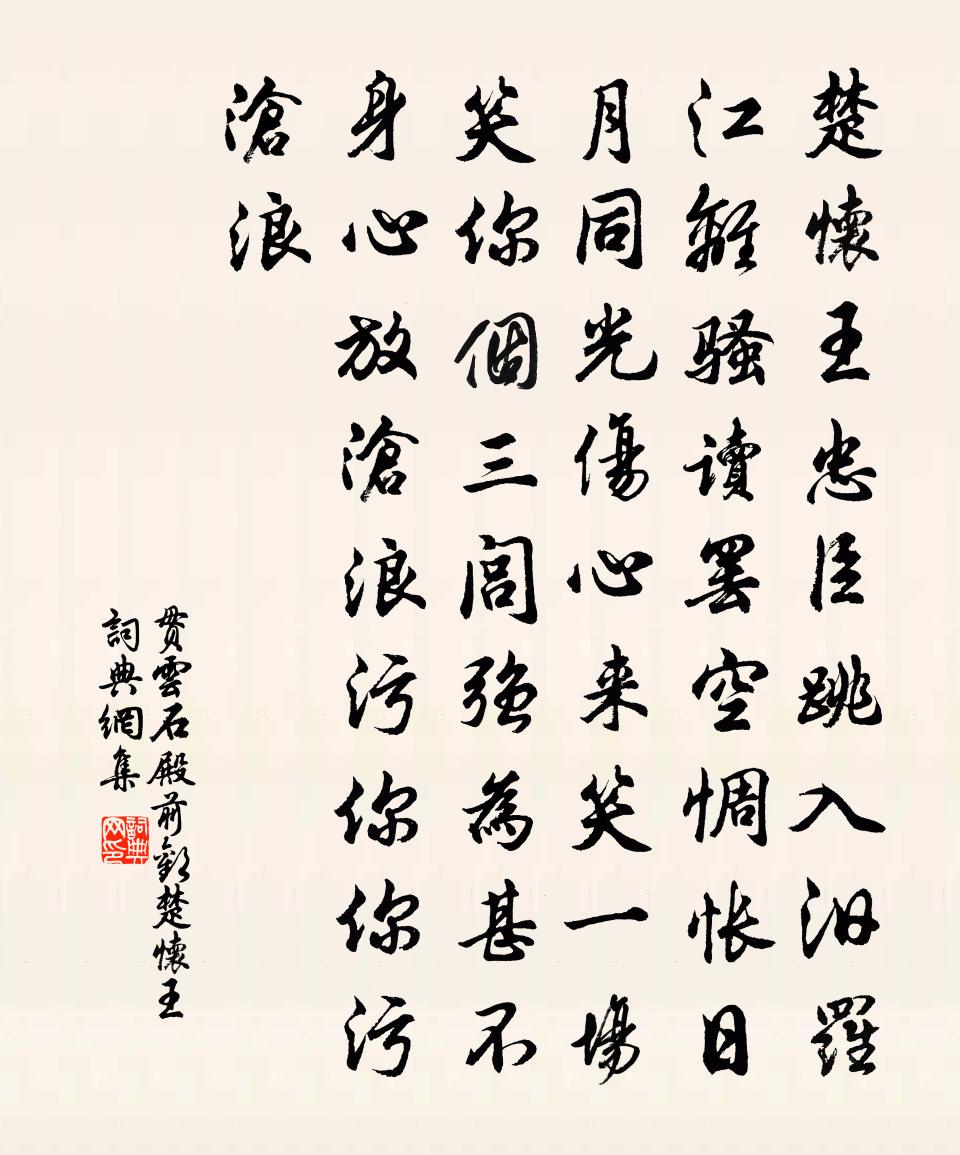 楚懷王忠臣跳入汨羅
江離騷讀罷空惆悵日
月同光傷心来笑一場
笑你個三閭強為甚不
身心放滄浪污你你污
滄浪
貫雲石殿前歡楚懷王
詞典網集
詞典网印